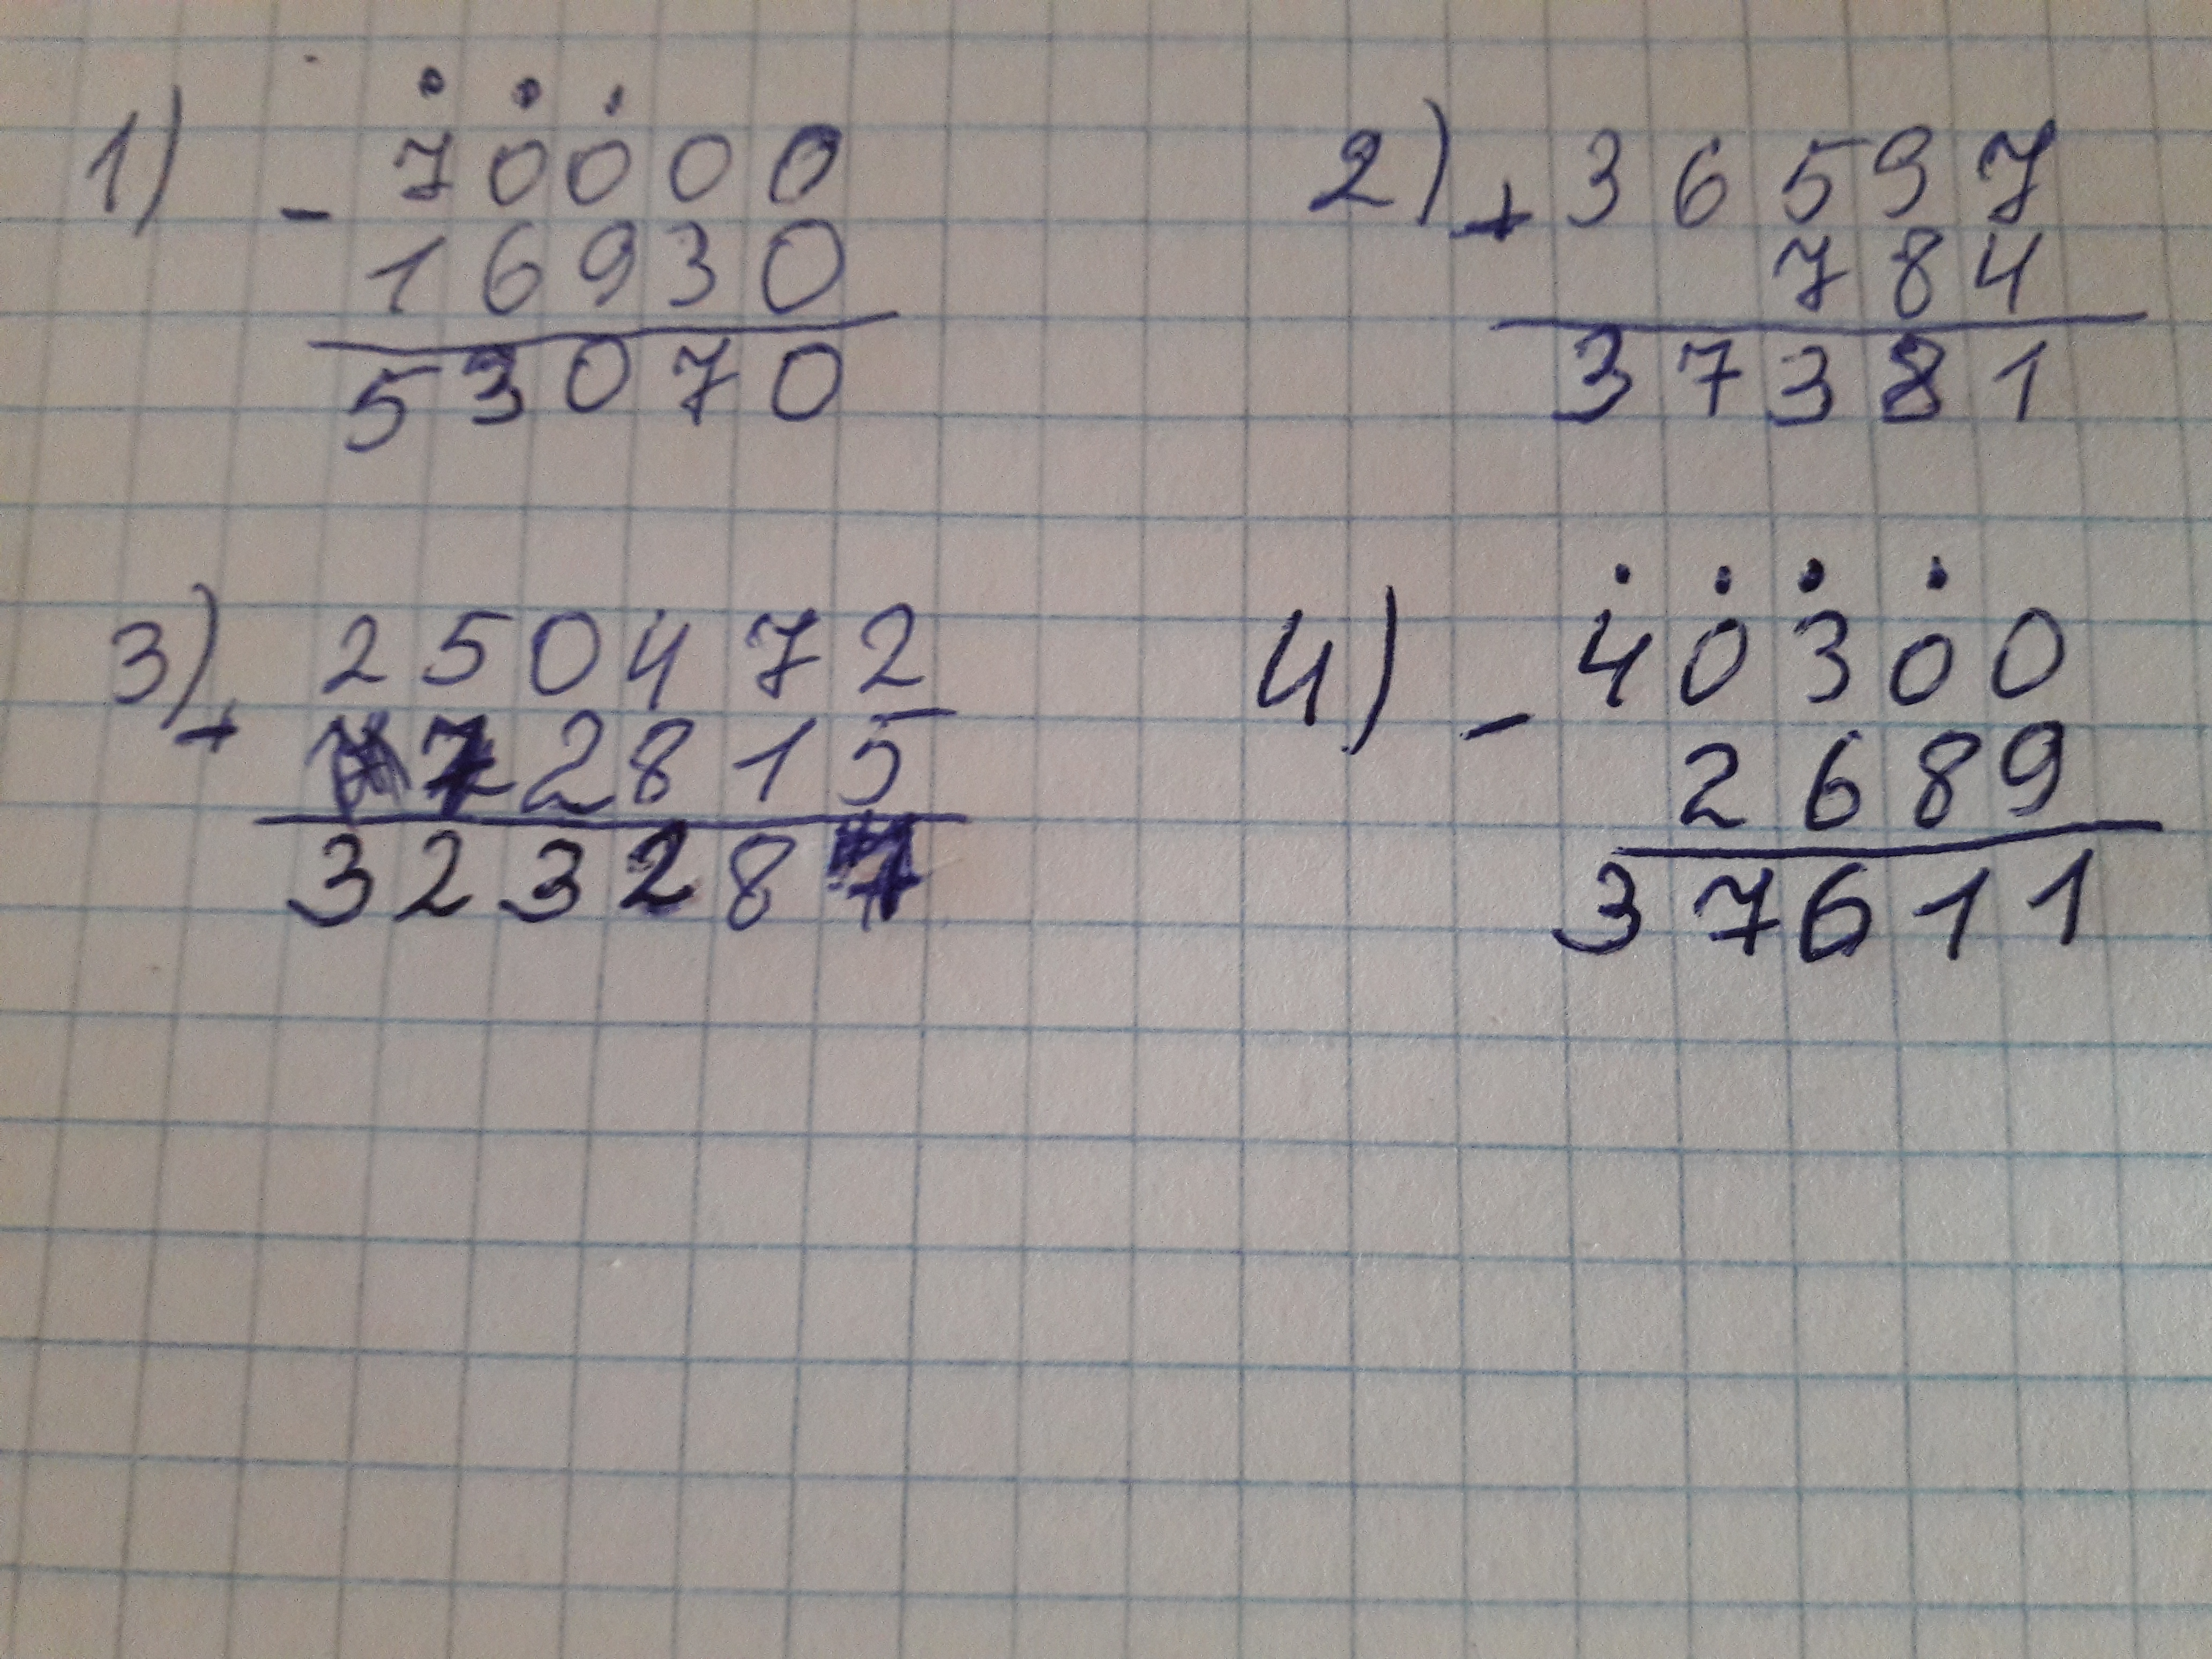 1) - 70000
16930
53070
2) + 36597
784
37381
3) + 250472
72815
323287
4) - 40300
2689
37611